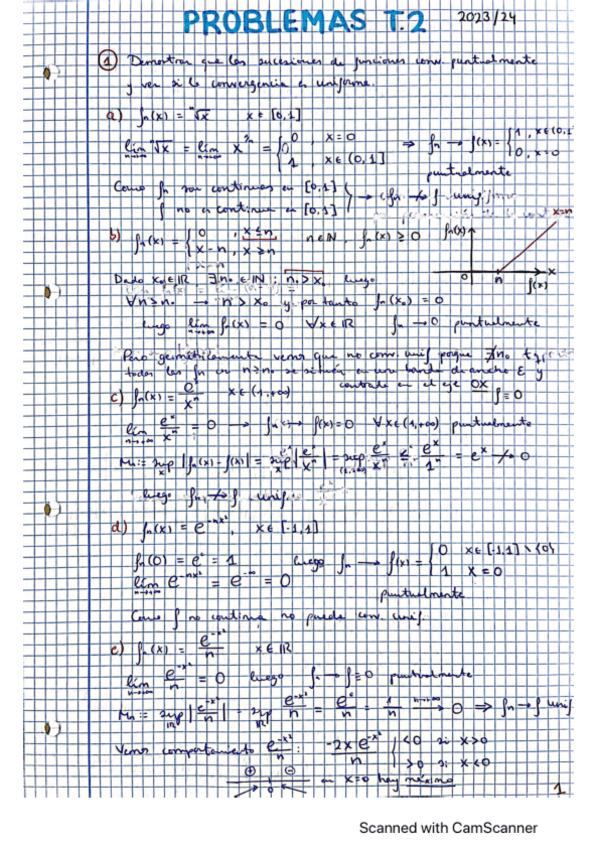 PROBLEMAS T.2 2023/24
① Demostrar que las sucesiones de funciones conv. puntualmente
y ver si la convergencia es uniforme.
a) fₙ(x) = ⁿ√x x ∈ [0,1]
lim ⁿ√x = lim x^(1/n) = { 0, x=0 ; 1, x ∈ (0,1] ⇒ fₙ → f(x) = { 1, x ∈ (0,1 ; 0, x=0
n→∞ puntualmente
Como fₙ son continuas en [0,1] } → fₙ ↛ f unif
f no es continua en [0,1]
b) fₙ(x) = { 0, x ≤ n ; x-n, x ≥ n n ∈ ℕ, fₙ(x) ≥ 0 fₙ(x) x-n 0 n x f(x)
Dado x₀ ∈ ℝ ∃n₀ ∈ ℕ : n₀ > x₀ luego
∀n ≥ n₀ → n > x₀ y por tanto fₙ(x₀) = 0
luego lim fₙ(x) = 0 ∀x ∈ ℝ fₙ → 0 puntualmente
Pero geométricamente vemos que no conv. unif porque ∄n₀
todas las fₙ con n ≥ n₀ se sitúen en una banda de ancho ε y
centrada en el eje OX
f ≡ 0
c) fₙ(x) = eˣ/xⁿ x ∈ (1,+∞)
lim eˣ/xⁿ = 0 → fₙ → f(x) = 0 ∀x ∈ (1,+∞) puntualmente
n→∞
Mₙ := sup |fₙ(x) - f(x)| = sup |eˣ/xⁿ| = sup eˣ/xⁿ ≤ eˣ/1ⁿ = eˣ ↛ 0
luego fₙ ↛ f unif.
d) fₙ(x) = e^(-nx²), x ∈ [-1,1]
fₙ(0) = e⁰ = 1 luego fₙ → f(x) = { 0 x ∈ [-1,1] \ {0} ; 1 x = 0
lim e^(-nx²) = e^(-∞) = 0
n→∞ puntualmente
Como f no continua no puede conv. unif.
e) fₙ(x) = e^(-x²)/n x ∈ ℝ
lim e^(-x²)/n = 0 luego fₙ → f ≡ 0 puntualmente
n→∞
Mₙ := sup |e^(-x²)/n| = sup e^(-x²)/n = e⁰/n = 1/n → 0 ⇒ fₙ → f unif
Vemos comportamiento e^(-x²)/n : -2x e^(-x²)/n { <0 si x>0 ; >0 si x<0
⊕ ⊖ 0 en x=0 hay máximo
1
Scanned with CamScanner